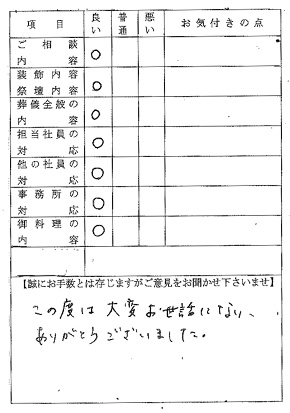 項目 良い 普通 悪い お気付きの点
ご相談
内容 ○
装飾内容
祭壇内容 ○
葬儀全般の
内容 ○
担当社員の
対応 ○
他の社員の
対応 ○
事務所の
対応 ○
御料理の
内容 ○
【誠にお手数とは存じますがご意見をお聞かせ下さいませ】
この度は大変お世話になり、
ありがとうございました。